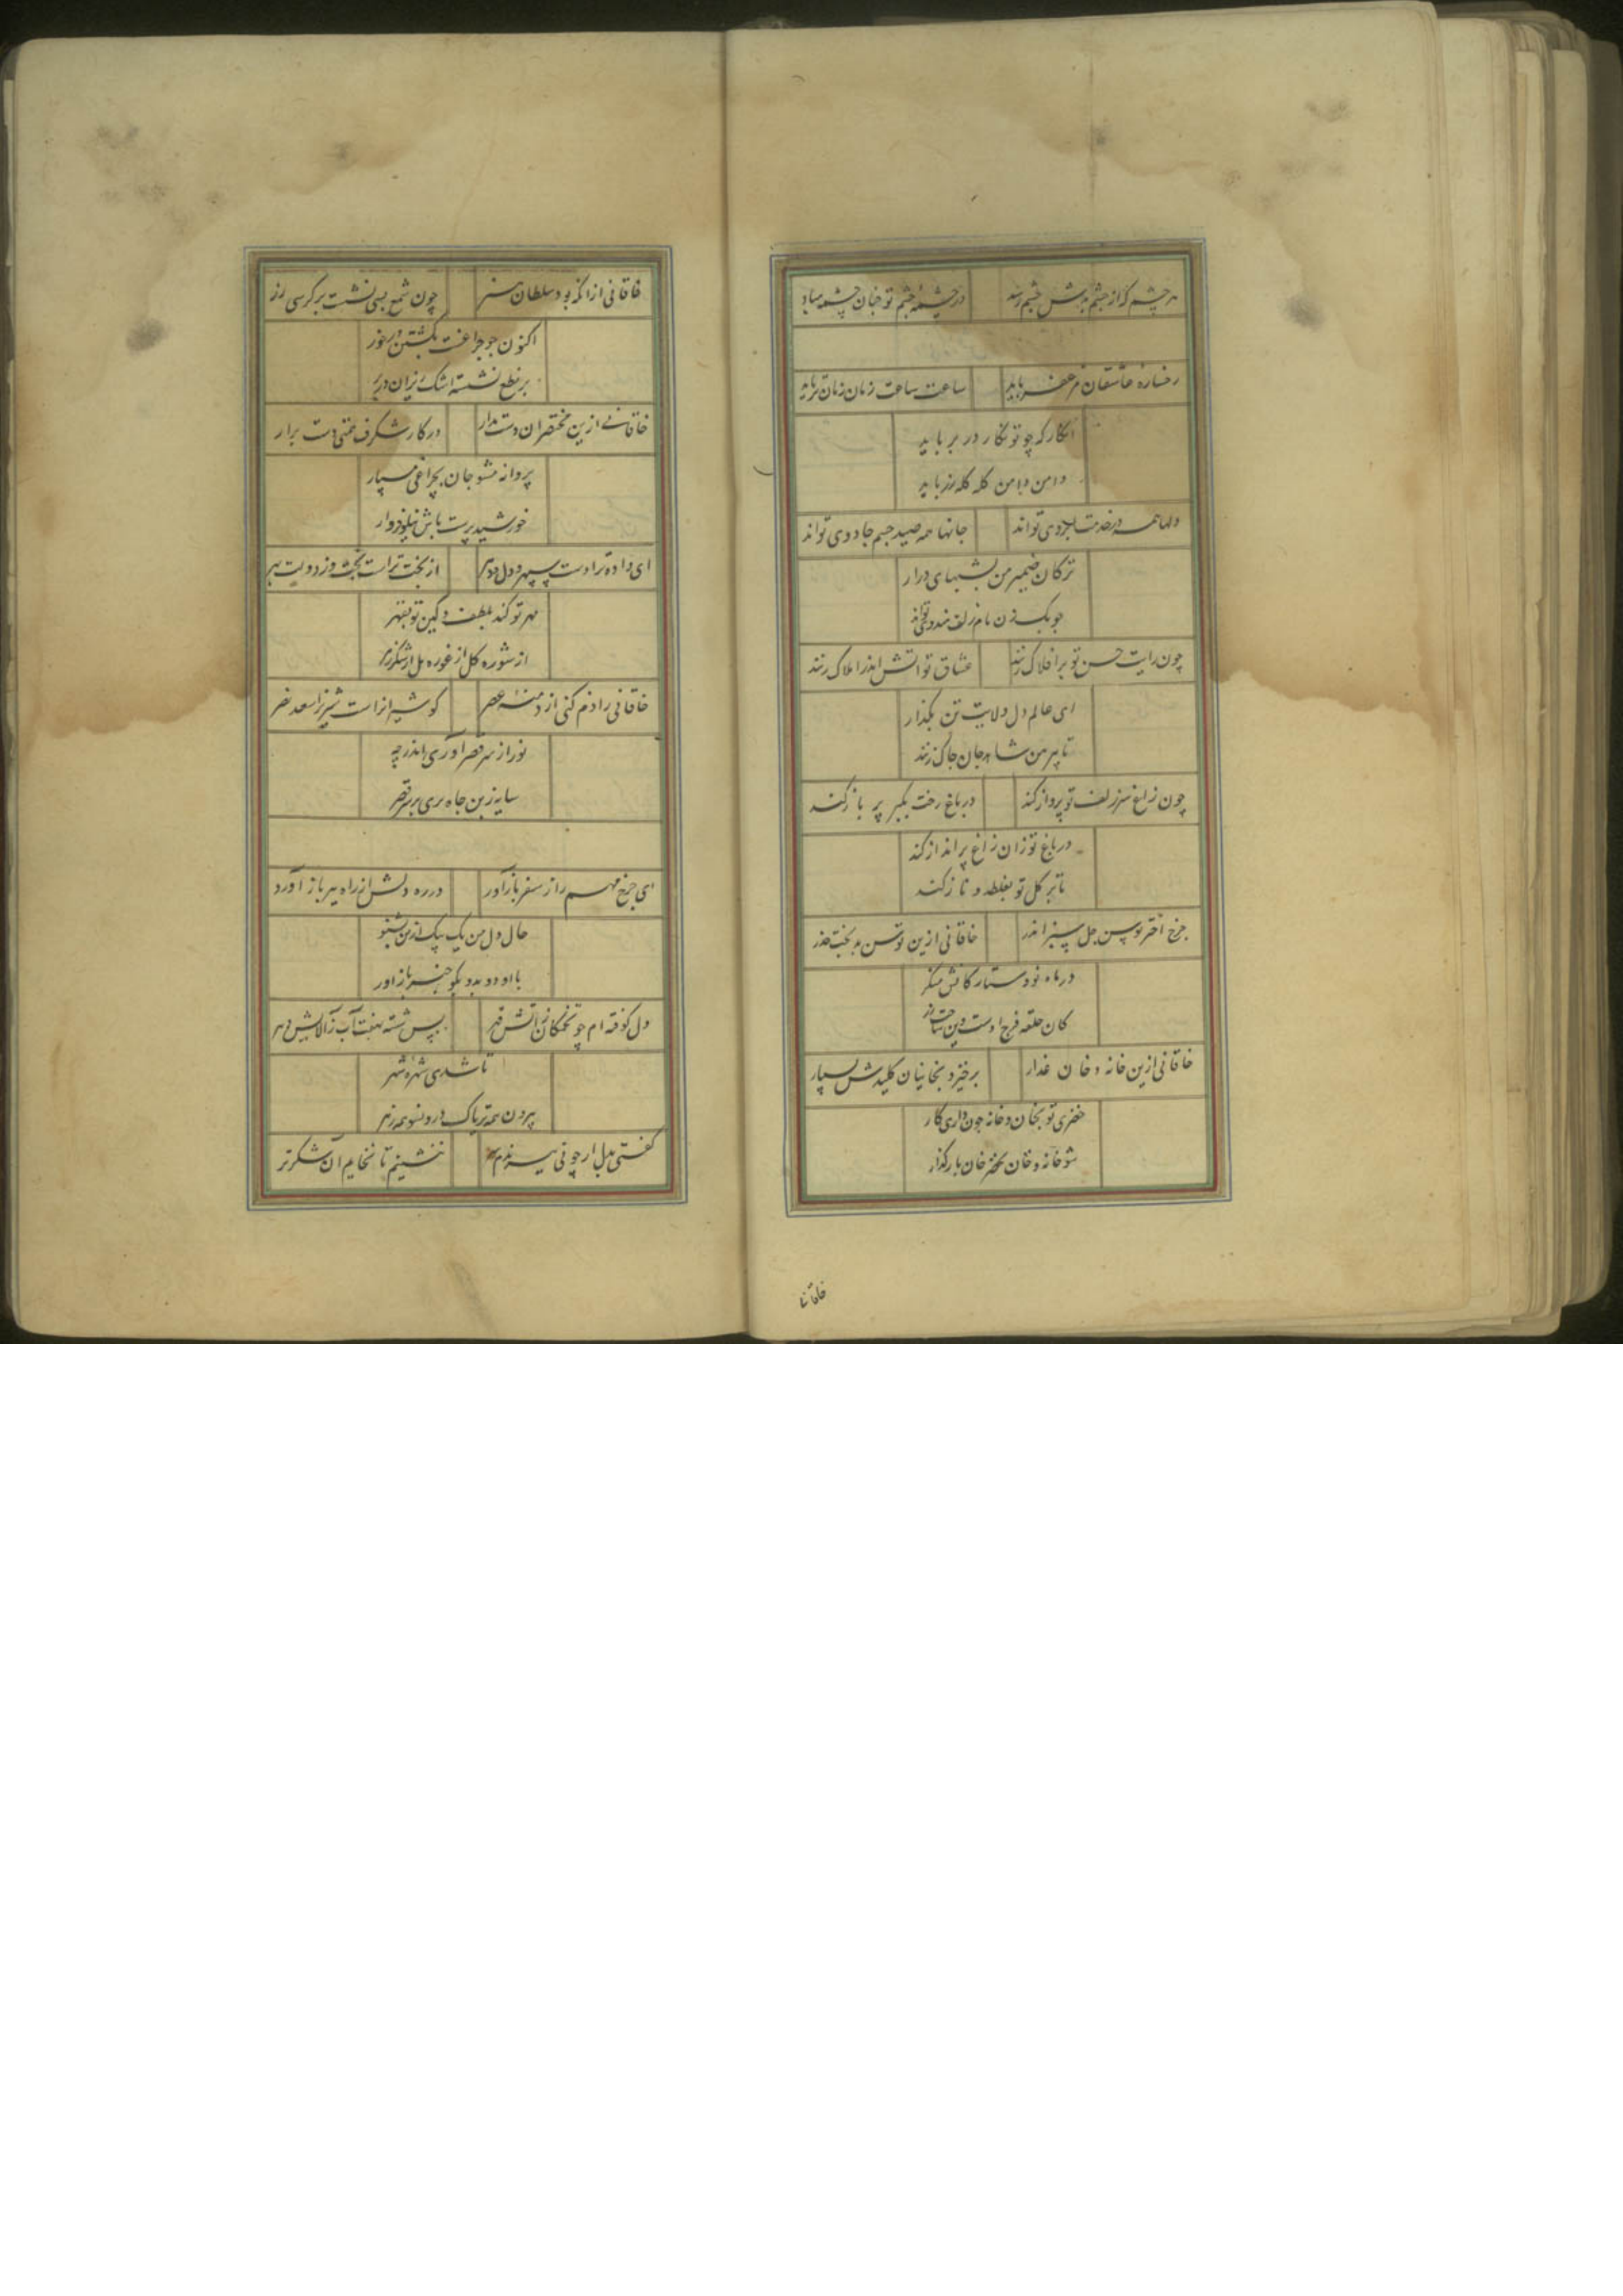 هر چشم که از چشم بدش چشم رسد در چشمه چشم تو چنان چشم مباد
رخساره عاشقان مزعفر باید ساعت ساعت زمان زمان تر باید
آنکار که چو تو نگار در بر باید
دامن دامن کله کله زر باید
دلها همه در خدمت ابروی تواند جانها همه صید چشم جادوی تواند
ترکان ضمیر من بشبهای دراز
جوبک زن بام زلف هندوی تواند
چون رایت حسن تو بر افلاک زنند عشاق تو اتش اندر املاک زنند
ای عالم دل ولایت تن بگذار
تا پیرهن شاهد جان چاک زنند
چون زاغ سر زلف تو پرواز کند در باغ رخت بکبر پر باز کند
در باغ تو زان زاغ پر انداز کند
تا بر کل تو بغلطد و ناز کند
چرخ استر توسن جل سبز اندر خاقانی ازین توسن بدبخت حذر
در ماه نو و ستاره کانش منکر
کان حلقه فرج است وین
خاقانی ازین خانه و خان غدار برخیز و بخانیان کلیدش بسپار
خضری تو بخان و خانه چون داری کار
شو خانه و خان بخضر خان بازگذار
خاقانی از انکه بود سلطان هنر چون شمع بسی نشست بر کرسی زر
اکنون چو چراغست بکشتن در خور
بر نطع نشسته اشک ریزان در بر
خاقانی ازین مختصران دست مدار در کار شکرف همتی دست برار
پروانه مشو جان بچراغی مسپار
خورشید پرست باش نیلوفروار
ای داده ترا دست سپهر و دل دهر از بخت ترا تخت وز دولت بهر
مهر تو کند بلطف و کین تو بقهر
از شوره کل از غوره مل از شکر زهر
خاقانی را ذم کنی از دمنه عصر کو شیر از است شیر زاسعد نصر
نور از سر قصر آوری اندر چه
سایه زبن جاه بری بر سر قصر
ای چرخ مهم را ز سفر بازآور در ره دلش از راه ببر باز آورد
حال دل من یک بیک از من بشنو
با او دو بدو بکو خبر بازآور
دل کوفته ام چو تخمکان ز آتش قهر پس شسته بهفت آب ز آلایش دهر
تا شدی شهره شهر
بیرون همه تریاک درونسو همه زهر
کفتی بدل ار چو نی ببندم بننشینم تا نخایم آن شکر تر
خاقانیا